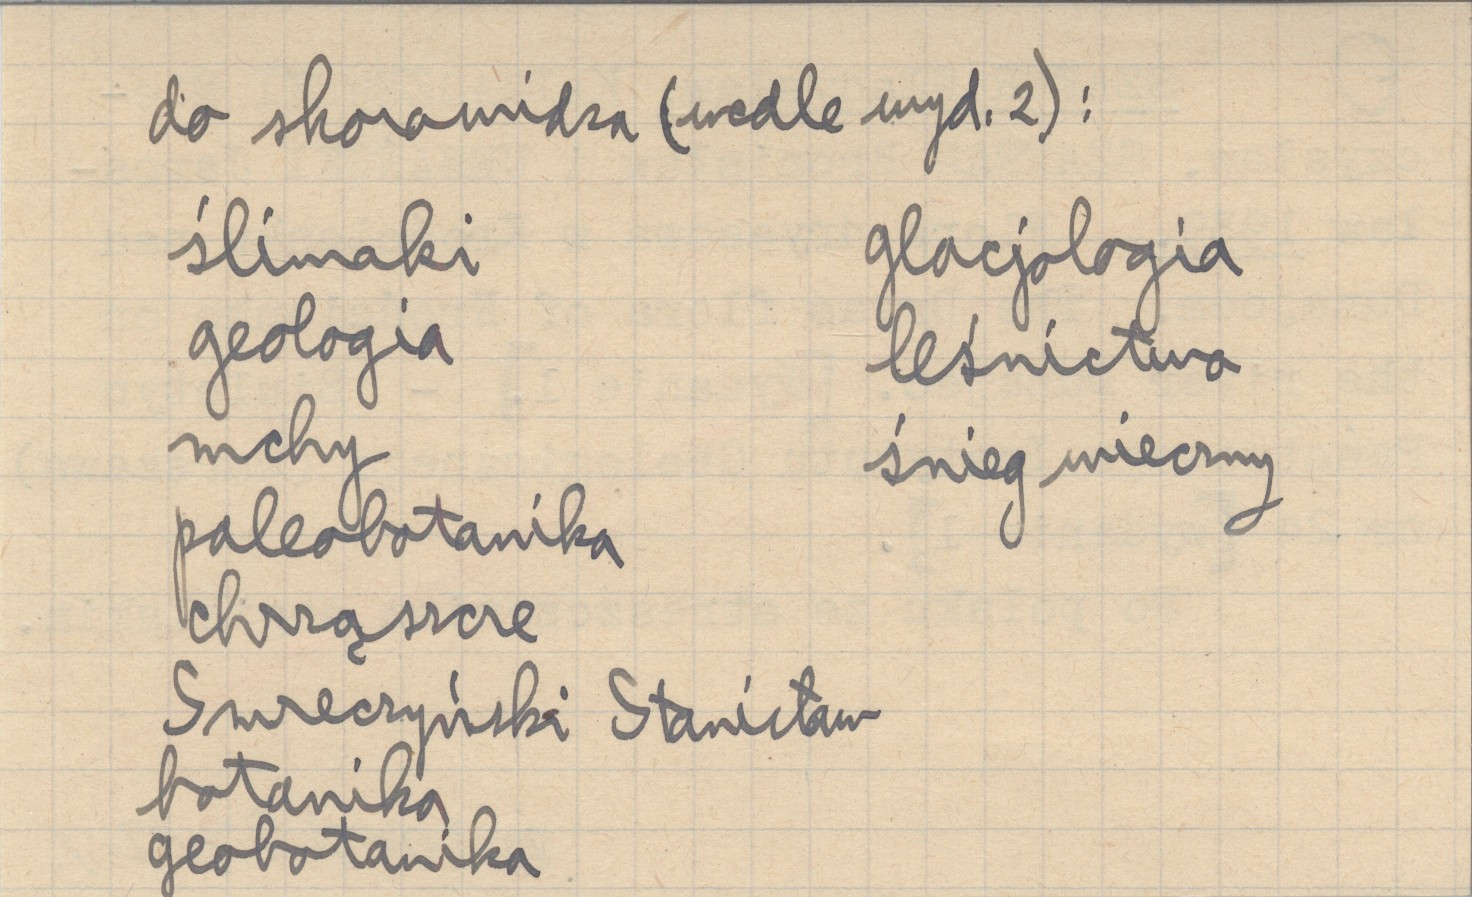 do skorowidza (wedle wyd. 2):
ślimaki
geologia
mchy
paleobotanika
chrząszcze
Smreczyński Stanisław
botanika
geobotanika
glacjologia
leśnictwo
śnieg wieczny